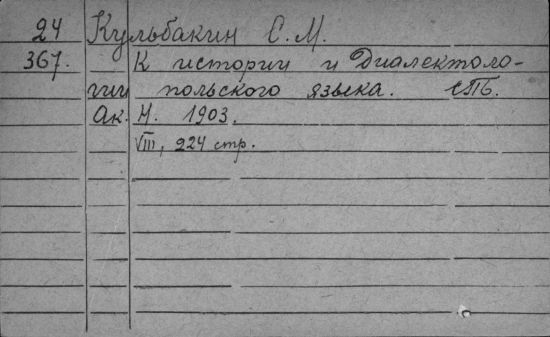 24 Кульбакин С. М.
367. К истории и Диалектоло-
гии польского языка. СПБ.
Ак. Н. 1903.
VIII, 224 стр.